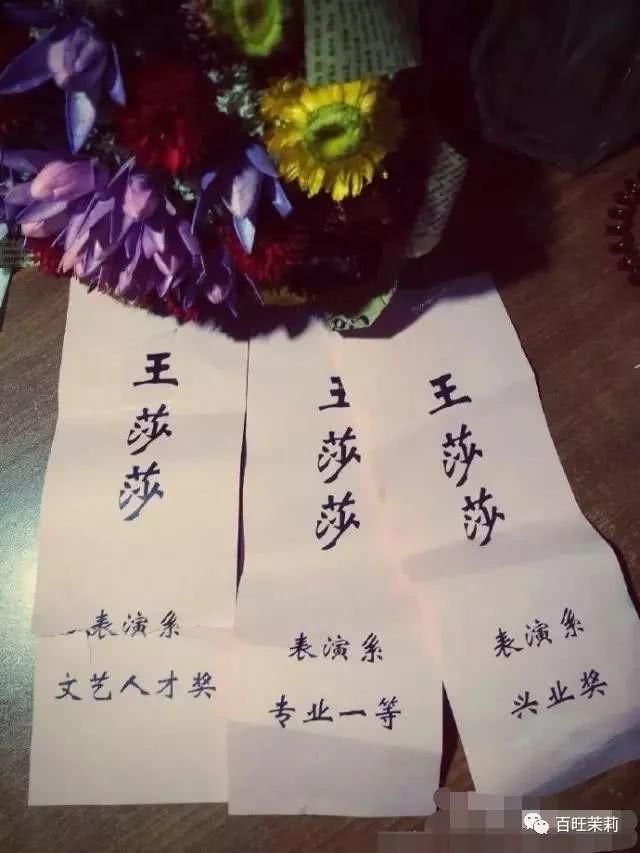 王
莎
莎
表演系
文艺人才奖
王
莎
莎
表演系
专业一等
王
莎
莎
表演系
兴业奖
百旺茉莉